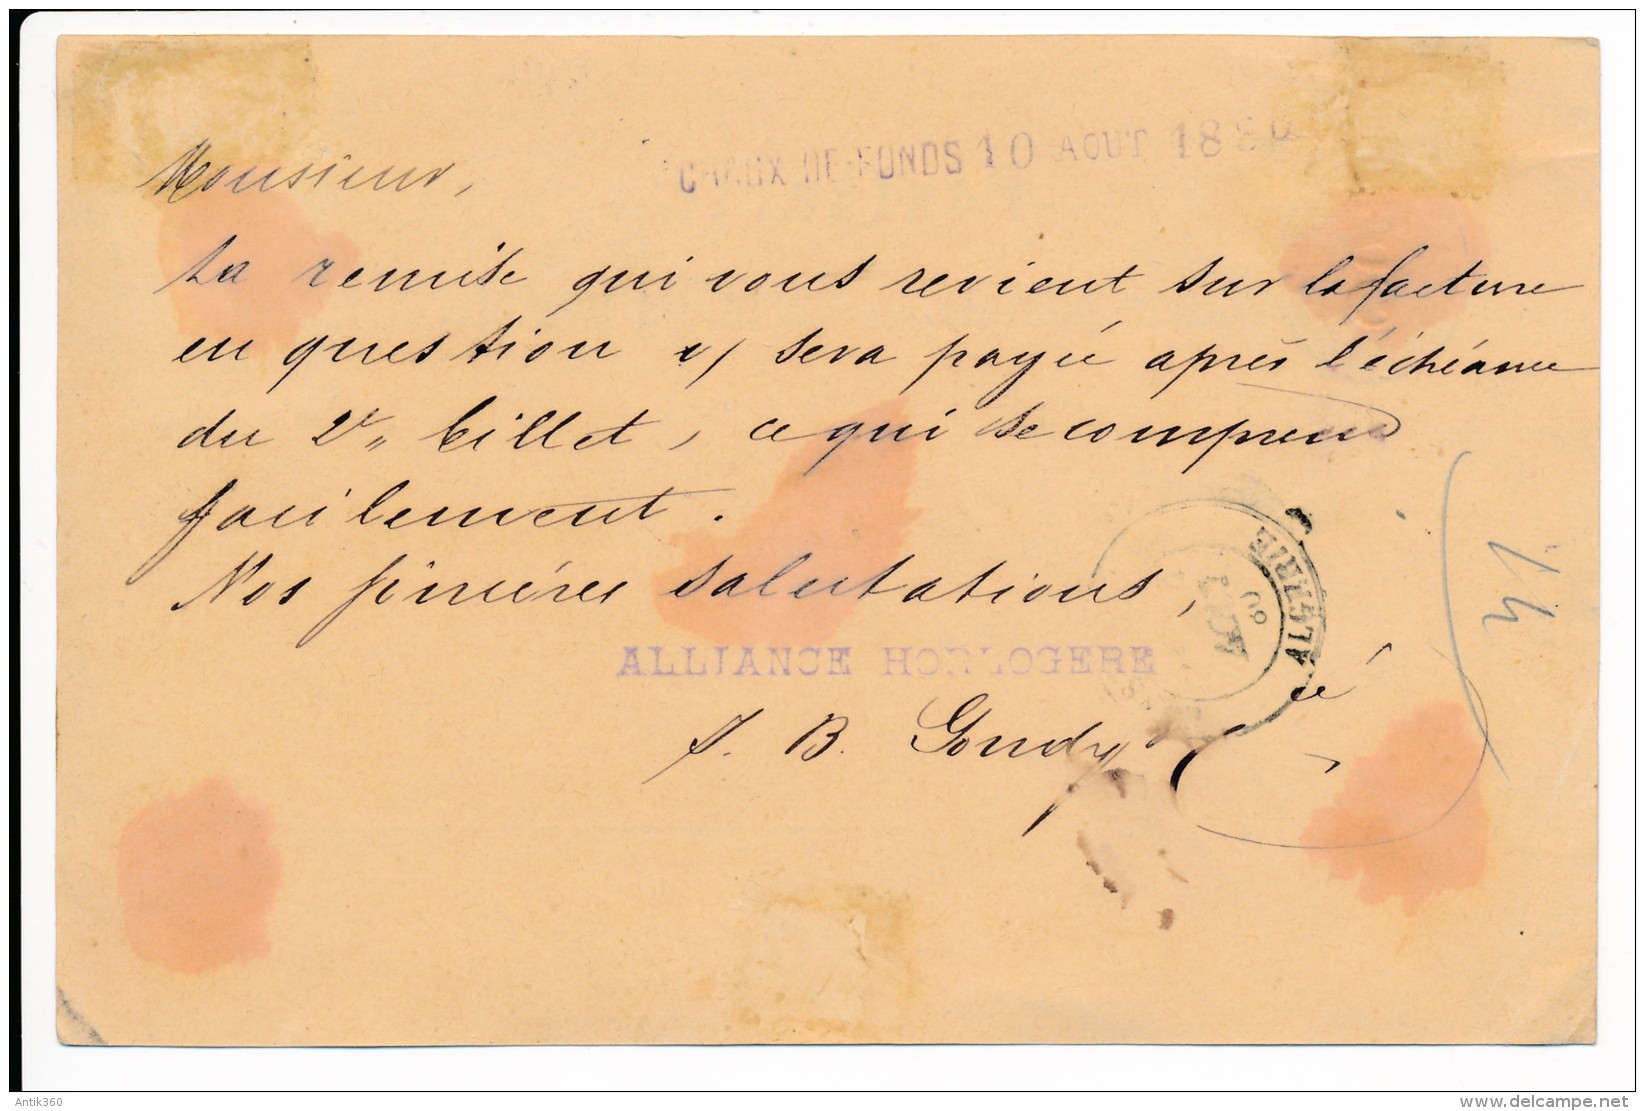 CHAUX-DE-FONDS 10 AOUT 188
Monsieur,
La remise qui vous revient sur la facture
en question sera payée après l'échéance
du 2e billet, ce qui se comprend
facilement.
Nos sincères salutations,
ALLIANCE HORLOGERE
J. B. Gondy
ALGERIE
14
Antik360
delcampe.net